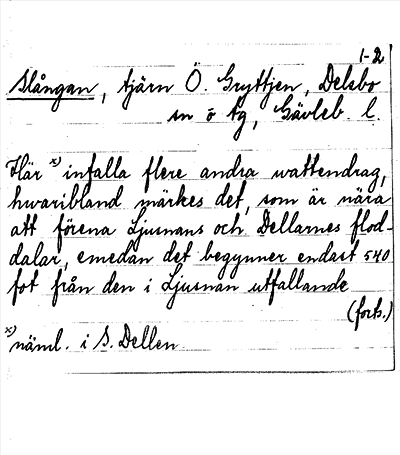 1-2
Slången, tjärn Ö. Gryttjen, Delsbo
sn o tg, Gävleb. l.
Här x) infalla flere andra wattendrag,
hwaribland märkes det, som är nära
att förena Ljusnans och Dellarnes flod-
dalar, emedan det begynner endast 540
fot från den i Ljusnan utfallande
(forts.)
x) näml. i S. Dellen.